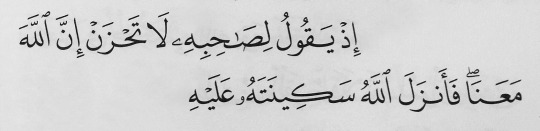 إِذْ يَقُولُ لِصَـٰحِبِهِۦ لَا تَحْزَنْ إِنَّ ٱللَّهَ
مَعَنَاۖ فَأَنزَلَ ٱللَّهُ سَكِينَتَهُۥ عَلَيْهِ